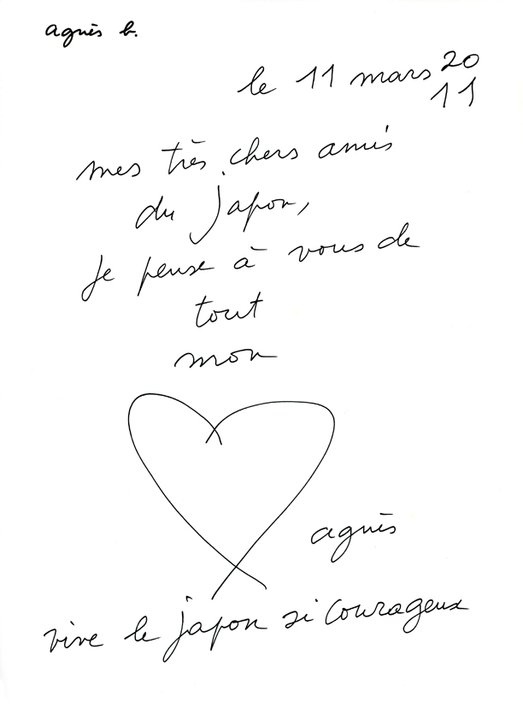 agnès b.
le 11 mars 20
11
mes très chers amis
du Japon,
Je pense à vous de
tout
mon
agnès
vive le japon si courageux